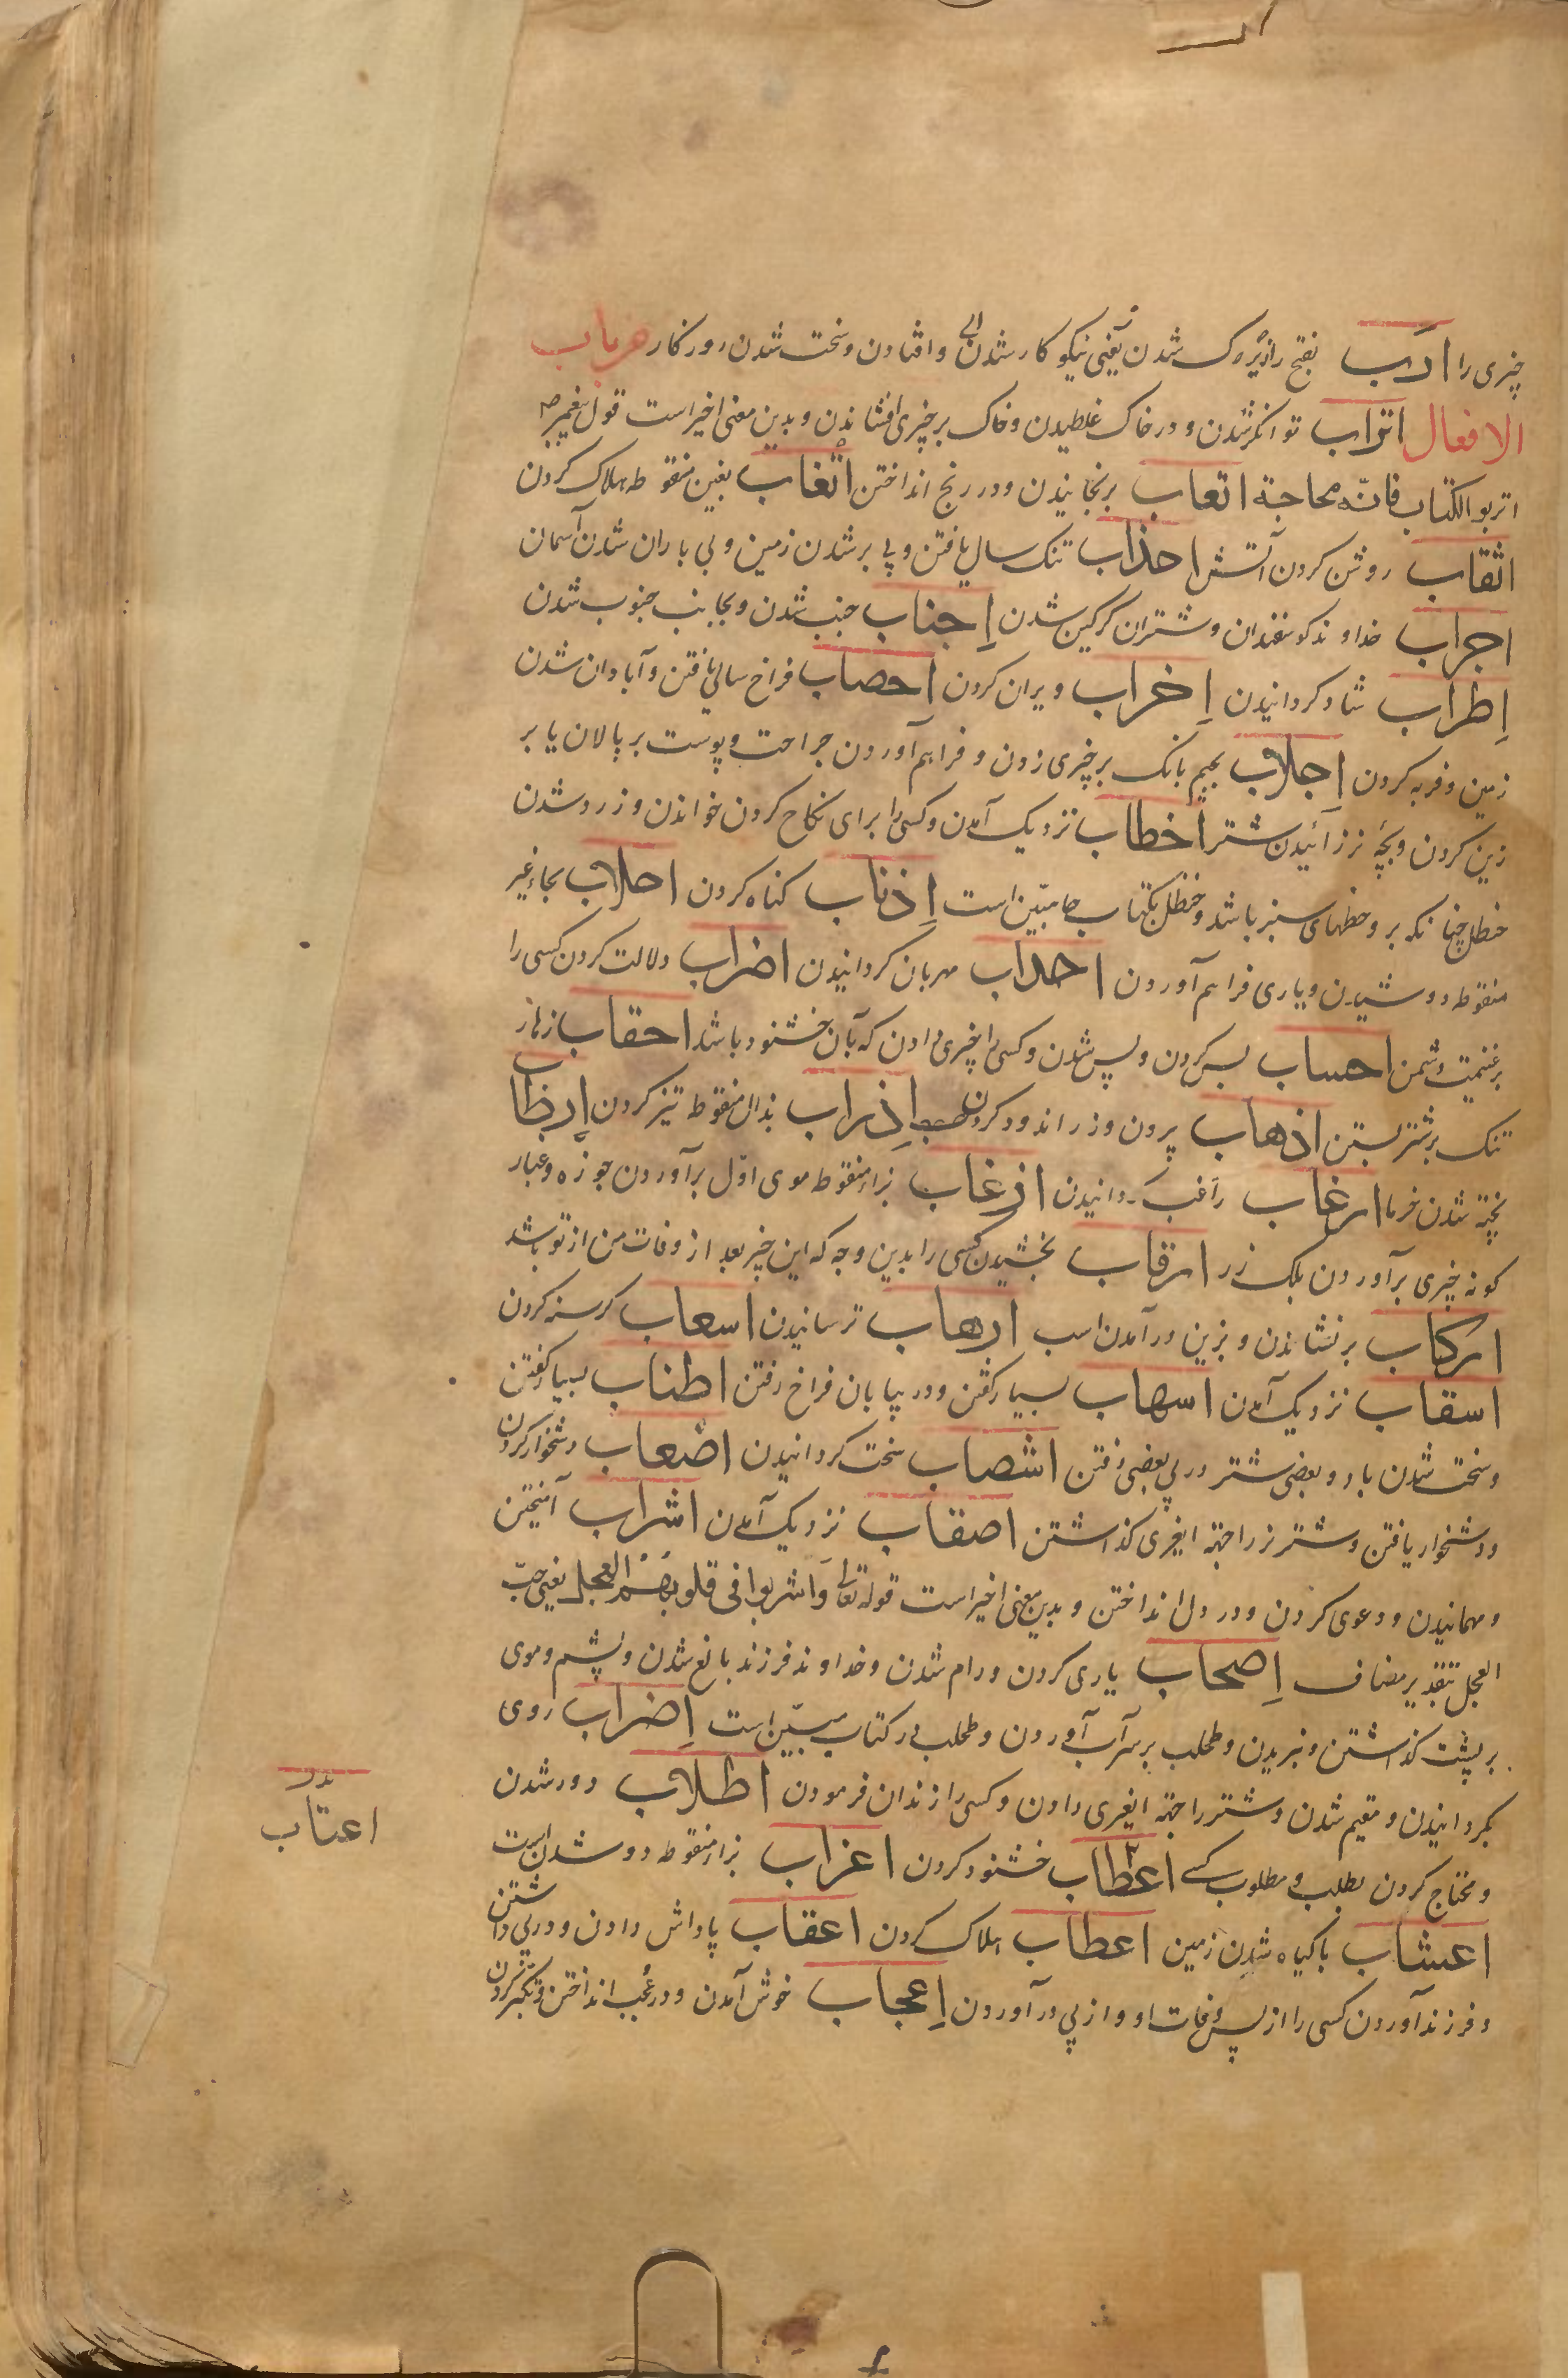 چیزی را ادب بفتح را زیرک شدن یعنی نیکو کار شدن و افتادن و سخت شدن روزگار من باب
الافعال اتراب توانگر شدن و در خاک غلطیدن و خاک بر چیزی افشاندن و بدین معنی اخیر است قول پیغمبر صم
اتربو الکتاب فانّه محاجة اتعاب برنجانیدن و در رنج انداختن اتغاب بغین منقوطه هلاک کردن
اثقاب روشن کردن آتش اجذاب تنک سال یافتن و پی بر شدن زمین و بی باران شدن آسمان
اجراب خداوند کوسفندان و شتران کرکین شدن إجناب جنب شدن و بجانب جنوب شدن
إطراب شاد کردانیدن إخراب ویران کردن احصاب فراخ سالی یافتن و آبادان شدن
زمین و فربه کردن إجلاب بجیم بانک بر چیزی زدن و فراهم آوردن جراحت و پوست بر پالان یا بر
زین کردن و بچهٔ نر زائیدن شتر أخطاب نزدیک آمدن و کسی را برای نکاح کردن خواندن و زرد شدن
حنظل چنانکه برو خطهای سبز باشد و حنظل بکتاب جا مبیّن است إذناب کناه کردن احلاب بحاء غیر
منقوطه دوشیدن و یاری فراهم آوردن احداب مهربان کردانیدن اضراب دلالت کردن کسی را
بر غنیمت دشمن احساب بس کردن و بس شدن و کسی را چیزی دادن که بآن خشنود باشد احقاب زهار
تنک بر شتر بستن اذهاب بردن و زر اندود کردن إذراب بذال منقوطه تیز کردن إرطاب
پخته شدن خرما ارغاب راغب کردانیدن ازغاب بزاء منقوطه موی اوّل برآوردن جوزه و غبار
کونه چیزی برآوردن بلک زر ارقاب بخشیدن کسی را بدین وجه که این چیز بعد از وفات من از تو باشد
ارکاب برنشاندن و بزین درآمدن اسب ارهاب ترسانیدن اسعاب کرسنه کردن
اسقاب نزدیک آمدن اسهاب بسیار کفتن و در بیابان فراخ رفتن اطناب بسیار کفتن
و سخت شدن باد و بعضی شتر در پی بعضی رفتن اشصاب سخت کردانیدن اصعاب دشخوار کردن
و دشخوار یافتن و شتر نر را جهته ایغری کذاشتن اصقاب نزدیک آمدن اشراب آمیختن
و مهمانیدن و دعوی کردن و در دل انداختن و بدین معنی اخیر است قوله تعالی وَاشربوا فی قلوبهم العجل یعنی حبّ
العجل بتقدیر مضاف إصحاب یاری کردن و رام شدن و خداوند فرزند بالغ شدن و پشم و موی
بر پشت کذاشتن و نبریدن و طحلب بر سر آب آوردن و طحلب در کتاب مبیّن است إضراب روی
بکردانیدن و مقیم شدن و شتر را جهته ایغری دادن و کسی را زندان فرمودن اطلاب دور شدن
و محتاج کردن بطلب و مطلوب کسی اعطاب خشنود کردن اعزاب بزاء منقوطه دور شدن است
اعشاب باکیاه شدن زمین اعطاب هلاک کردن اعقاب پاداش دادن و در پی داشتن
و فرزند آوردن کسی را از پس وفات او و از پی درآوردن إعجاب خوش آمدن و در عُجب انداختن و تکبّر کردن
اعتاب